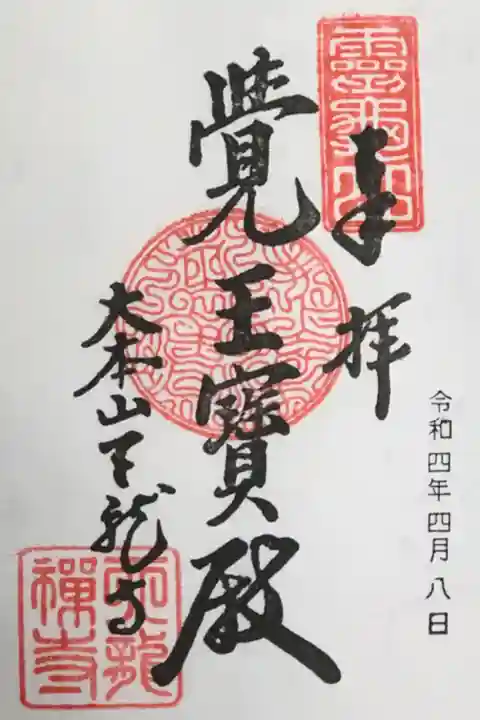 奉拝
覺王寶殿
大本山天龍寺
令和四年四月八日
靈龜山
天龍
禪寺